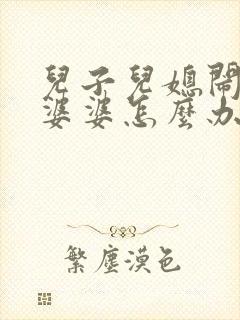 兒子兒媳鬧
婆婆怎麼办
繁塵漠色